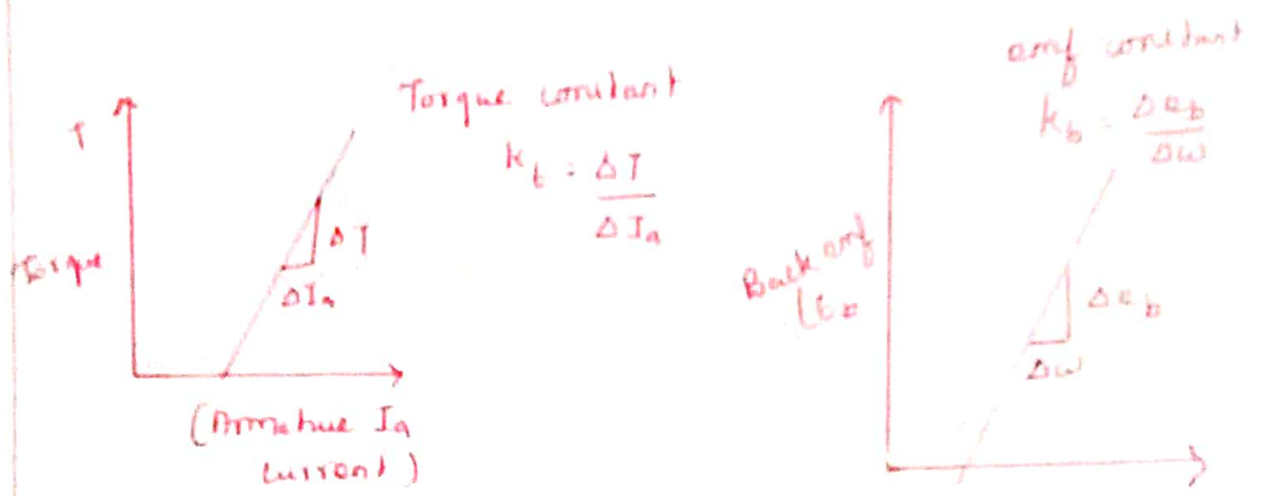 T
Torque
Torque constant
k_t = ΔT
ΔI_a
ΔT
ΔI_a
(Armature I_a
current)
emf constant
k_b = Δe_b
Δω
Back emf
(E_b
Δe_b
Δω